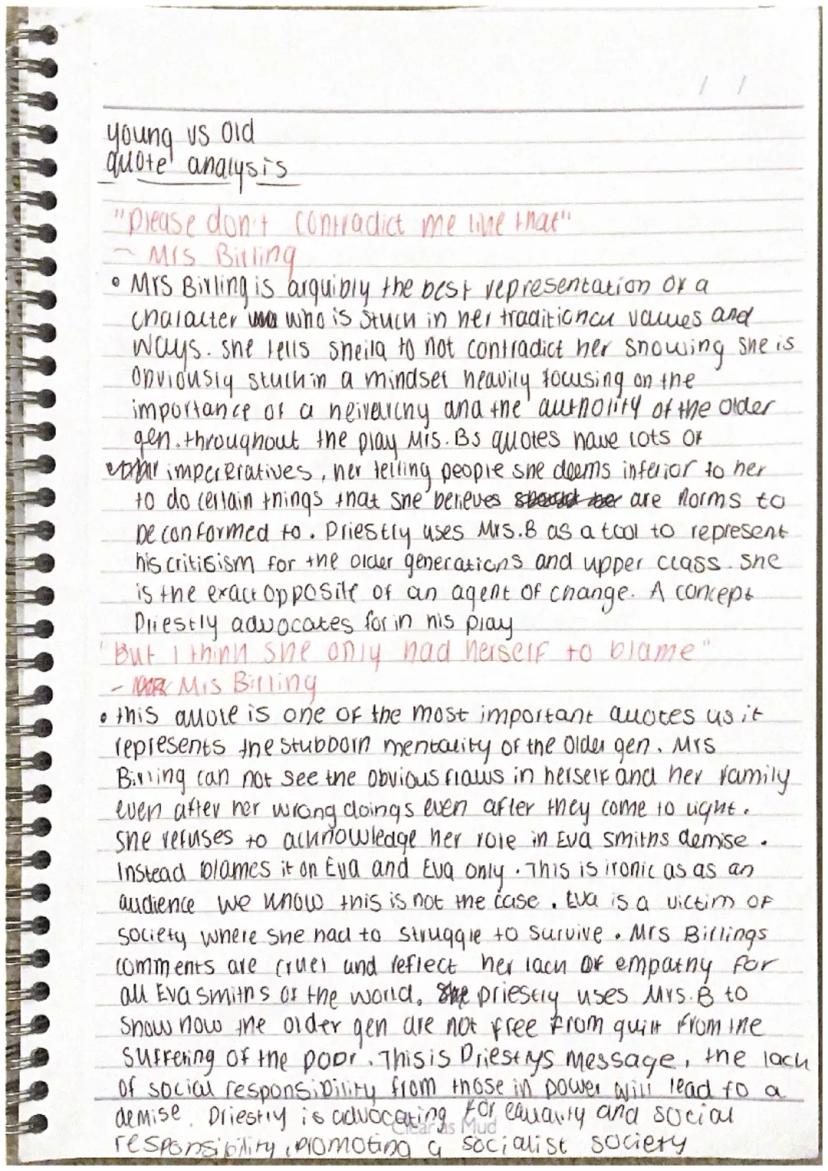 / /
young vs old
quote analysis
"please don't contradict me like that"
- Mrs Birling
• Mrs Birling is arguibly the best representation of a
character who is stuck in her traditional values and
ways. she tells sheila to not contradict her showing she is
obviously stuck in a mindset heavily focusing on the
importance of a heirarchy and the authority of the older
gen. throughout the play Mrs. Bs quotes have lots of
imperitives, her telling people she deems inferior to her
to do certain things that she believes are norms to
be conformed to. Priestly uses Mrs.B as a tool to represent
his critisism for the older generations and upper class. she
is the exact opposite of an agent of change. A concept
Priestly advocates for in his play
"But I think she only had herself to blame"
- Mrs Birling
• this quote is one of the most important quotes as it
represents the stubborn mentality of the older gen. Mrs
Birling can not see the obvious flaws in herself and her family
even after her wrong doings even after they come to light.
she refuses to acknowledge her role in Eva smiths demise.
Instead blames it on Eva and Eva only. This is ironic as as an
audience we know this is not the case. Eva is a victim of
society where she had to struggle to survive. Mrs Birlings
comments are cruel and reflect her lack of empathy for
all Eva smiths of the world. priestly uses Mrs.B to
show how the older gen are not free from guilt from the
suffering of the poor. This is Priestlys message, the lack
of social responsibility from those in power will lead to a
demise. Priestly is advocating for equality and social
responsibility, promoting a socialist society
Clear as Mud